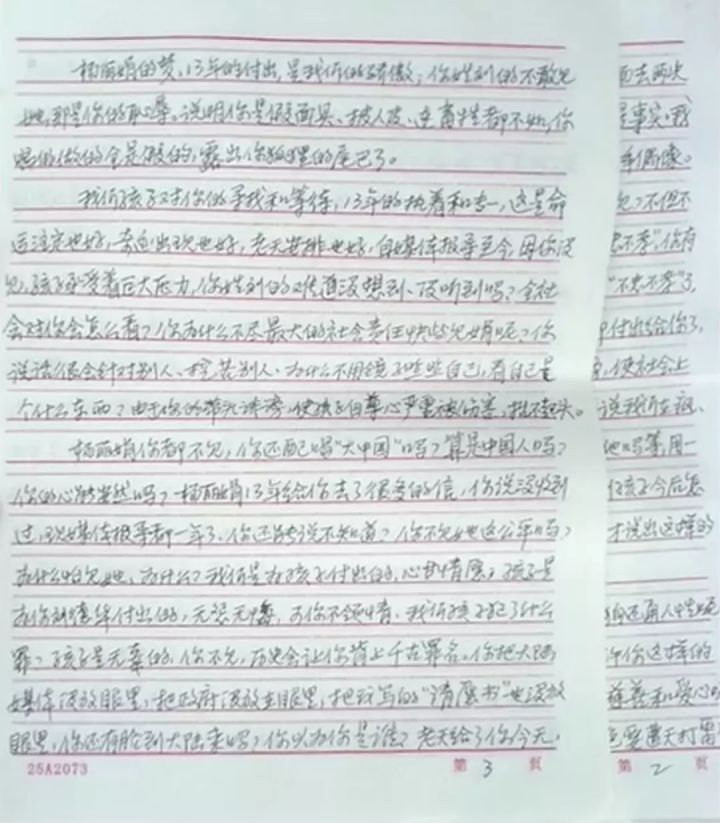 杨丽娟的梦,13年的付出,是我们的骄傲,你姓刘的不敢见
她,那是你的耻辱。说明你是假面具、披人皮、连畜牲都不如,你
唱的做的全是假的,露出你狐狸的尾巴了。
我们孩子对你的寻找和等待,13年的执着和专一,这是命
运注定也好,奇迹出现也好,老天安排也好,自媒体报导至今,因你没
见,孩子承受着巨大压力,你姓刘的难道没想到、没听到吗?全社
会对你会怎么看?你为什么不尽最大的社会责任快些见娟呢?你
说话很会针对别人、挖苦别人、为什么不用镜子照照自己,看自己是
个什么东西?由于你的 使孩子自尊心严重被伤害,抬不起头。
杨丽娟你都不见,你还配唱“大中国”吗?算是中国人吗?
你的心能安然吗?杨丽娟13年给你去了很多的信,你说没收到
过,现媒体报导都一年了,你还能说不知道?你不见她这公平吗?
为什么怕见她,为什么?我们是为孩子付出的,心甘情愿,孩子是
为你刘德华付出的,无怨无悔,可你不领情。我们孩子犯了什么
罪?孩子是无辜的,你不见,历史会让你背上千古罪名。你把大陆
媒体没放眼里,把政府没放在眼里,把我写的“请愿书”也没放
眼里,你还有脸到大陆来吗?你以为你是谁?老天给了你今天。
25A2073
第 3 页
面去两次
是事实,我
年偶像。
见?不但不
忠不孝”,你有
“不忠不孝”了,
付出给你了,
使社会上
说我们在疯、
她吗等,用一
孩子今后怎
才说出这样的
你这样的
慈善和爱心
要遭天打雷
第 2 页